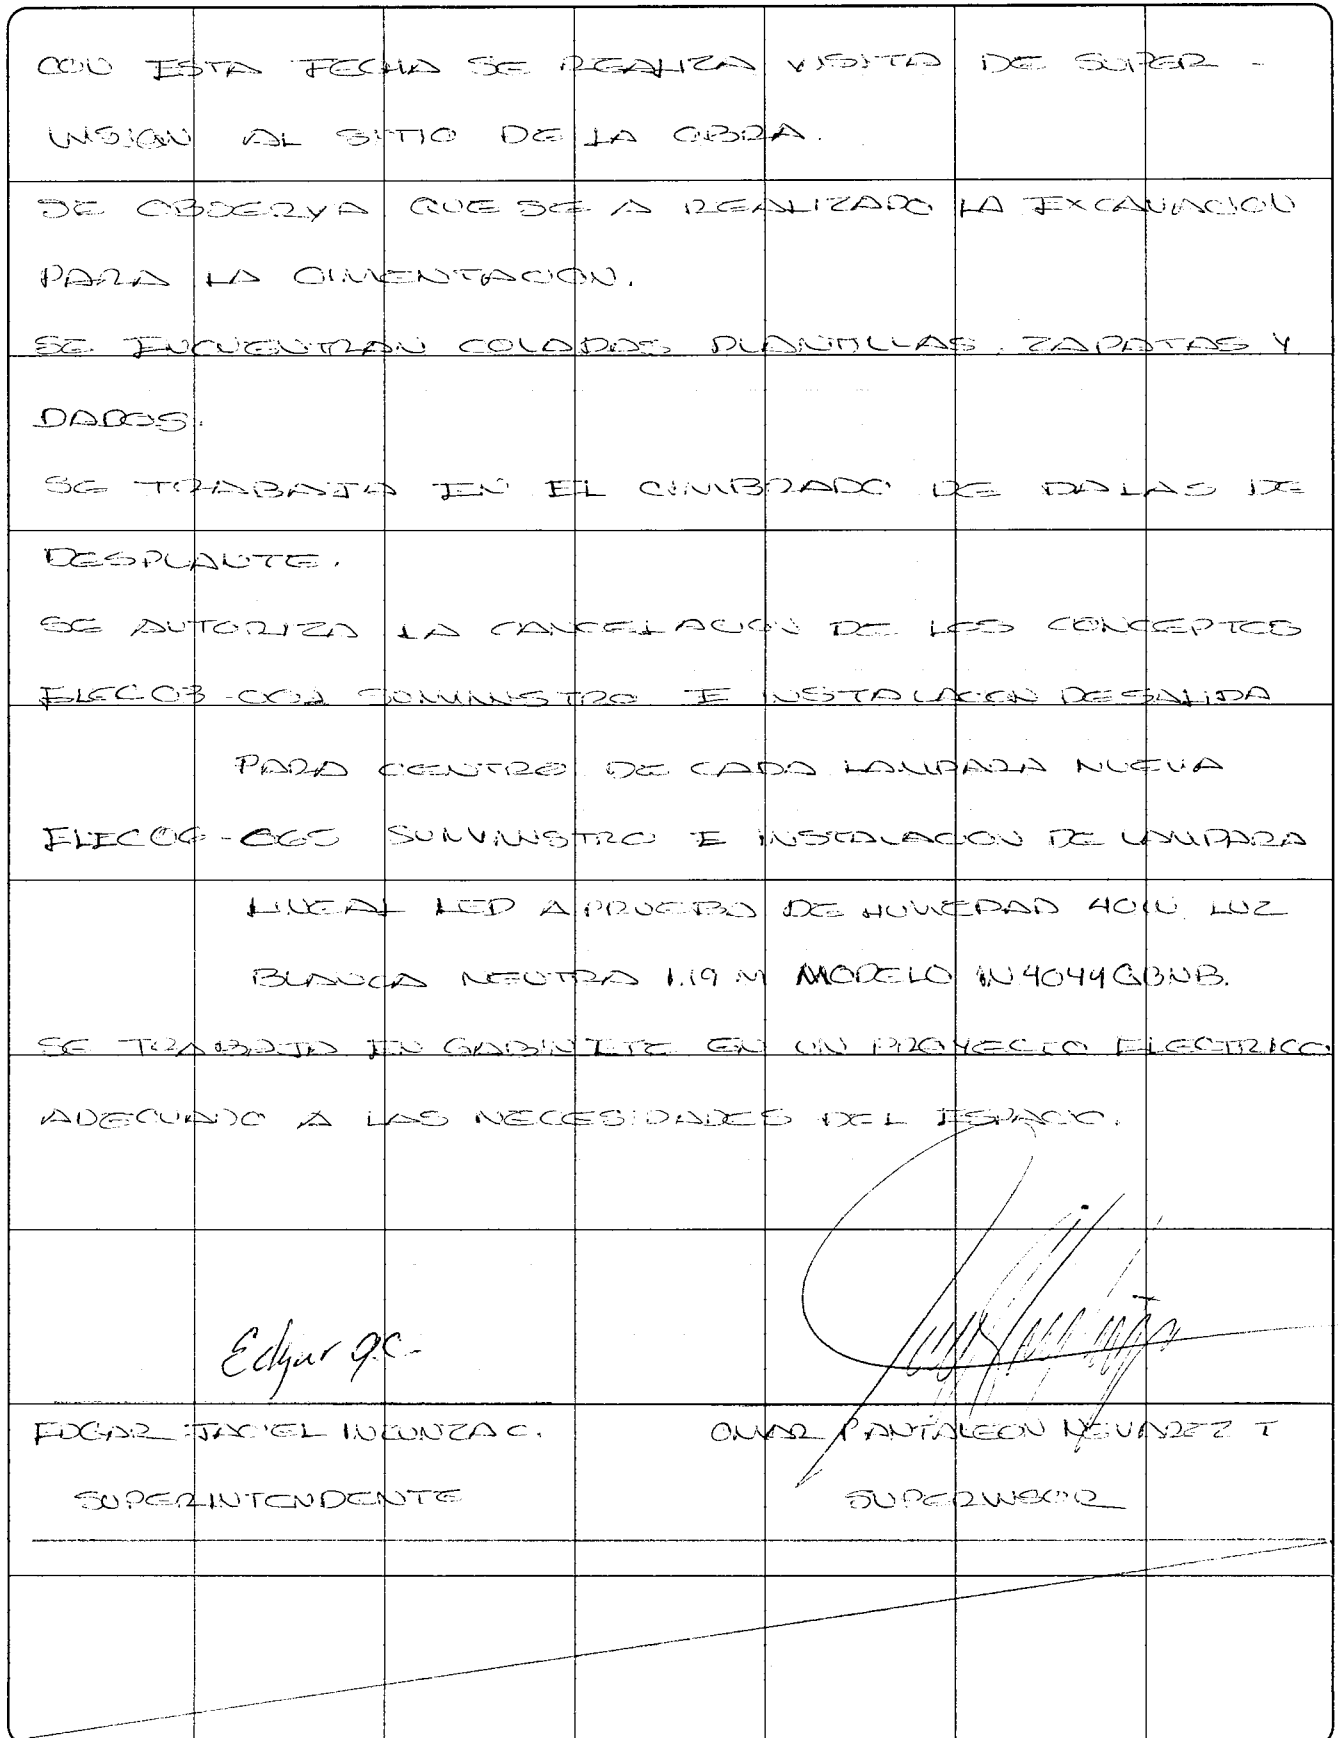 CON ESTA FECHA SE REALIZA VISITA DE SUPER -
VISION AL SITIO DE LA OBRA.
SE OBSERVA QUE SE A REALIZADO LA EXCAVACION
PARA LA CIMENTACION.
SE ENCUENTRAN COLADAS PLANTILLAS, ZAPATAS Y
DADOS.
SE TRABAJA EN EL CIMBRADO DE DALAS DE
DESPLANTE.
SE AUTORIZA LA CANCELACION DE LOS CONCEPTOS
ELEC03-001 SUMINISTRO E INSTALACION DE SALIDA
PARA CENTRO DE CADA LAMPARA NUEVA
ELEC06-065 SUMINISTRO E INSTALACION DE LAMPARA
LINEAL LED A PRUEBA DE HUMEDAD 40W LUZ
BLANCA NEUTRA 1.19 M MODELO IN4044GBNB.
SE TRABAJA EN GABINETE EN UN PROYECTO ELECTRICO
ADECUADO A LAS NECESIDADES DEL ESPACIO.
Edgar
EDGAR JACIEL INZUNZA C. OMAR PANTALEON NEVAREZ T
SUPERINTENDENTE SUPERVISOR